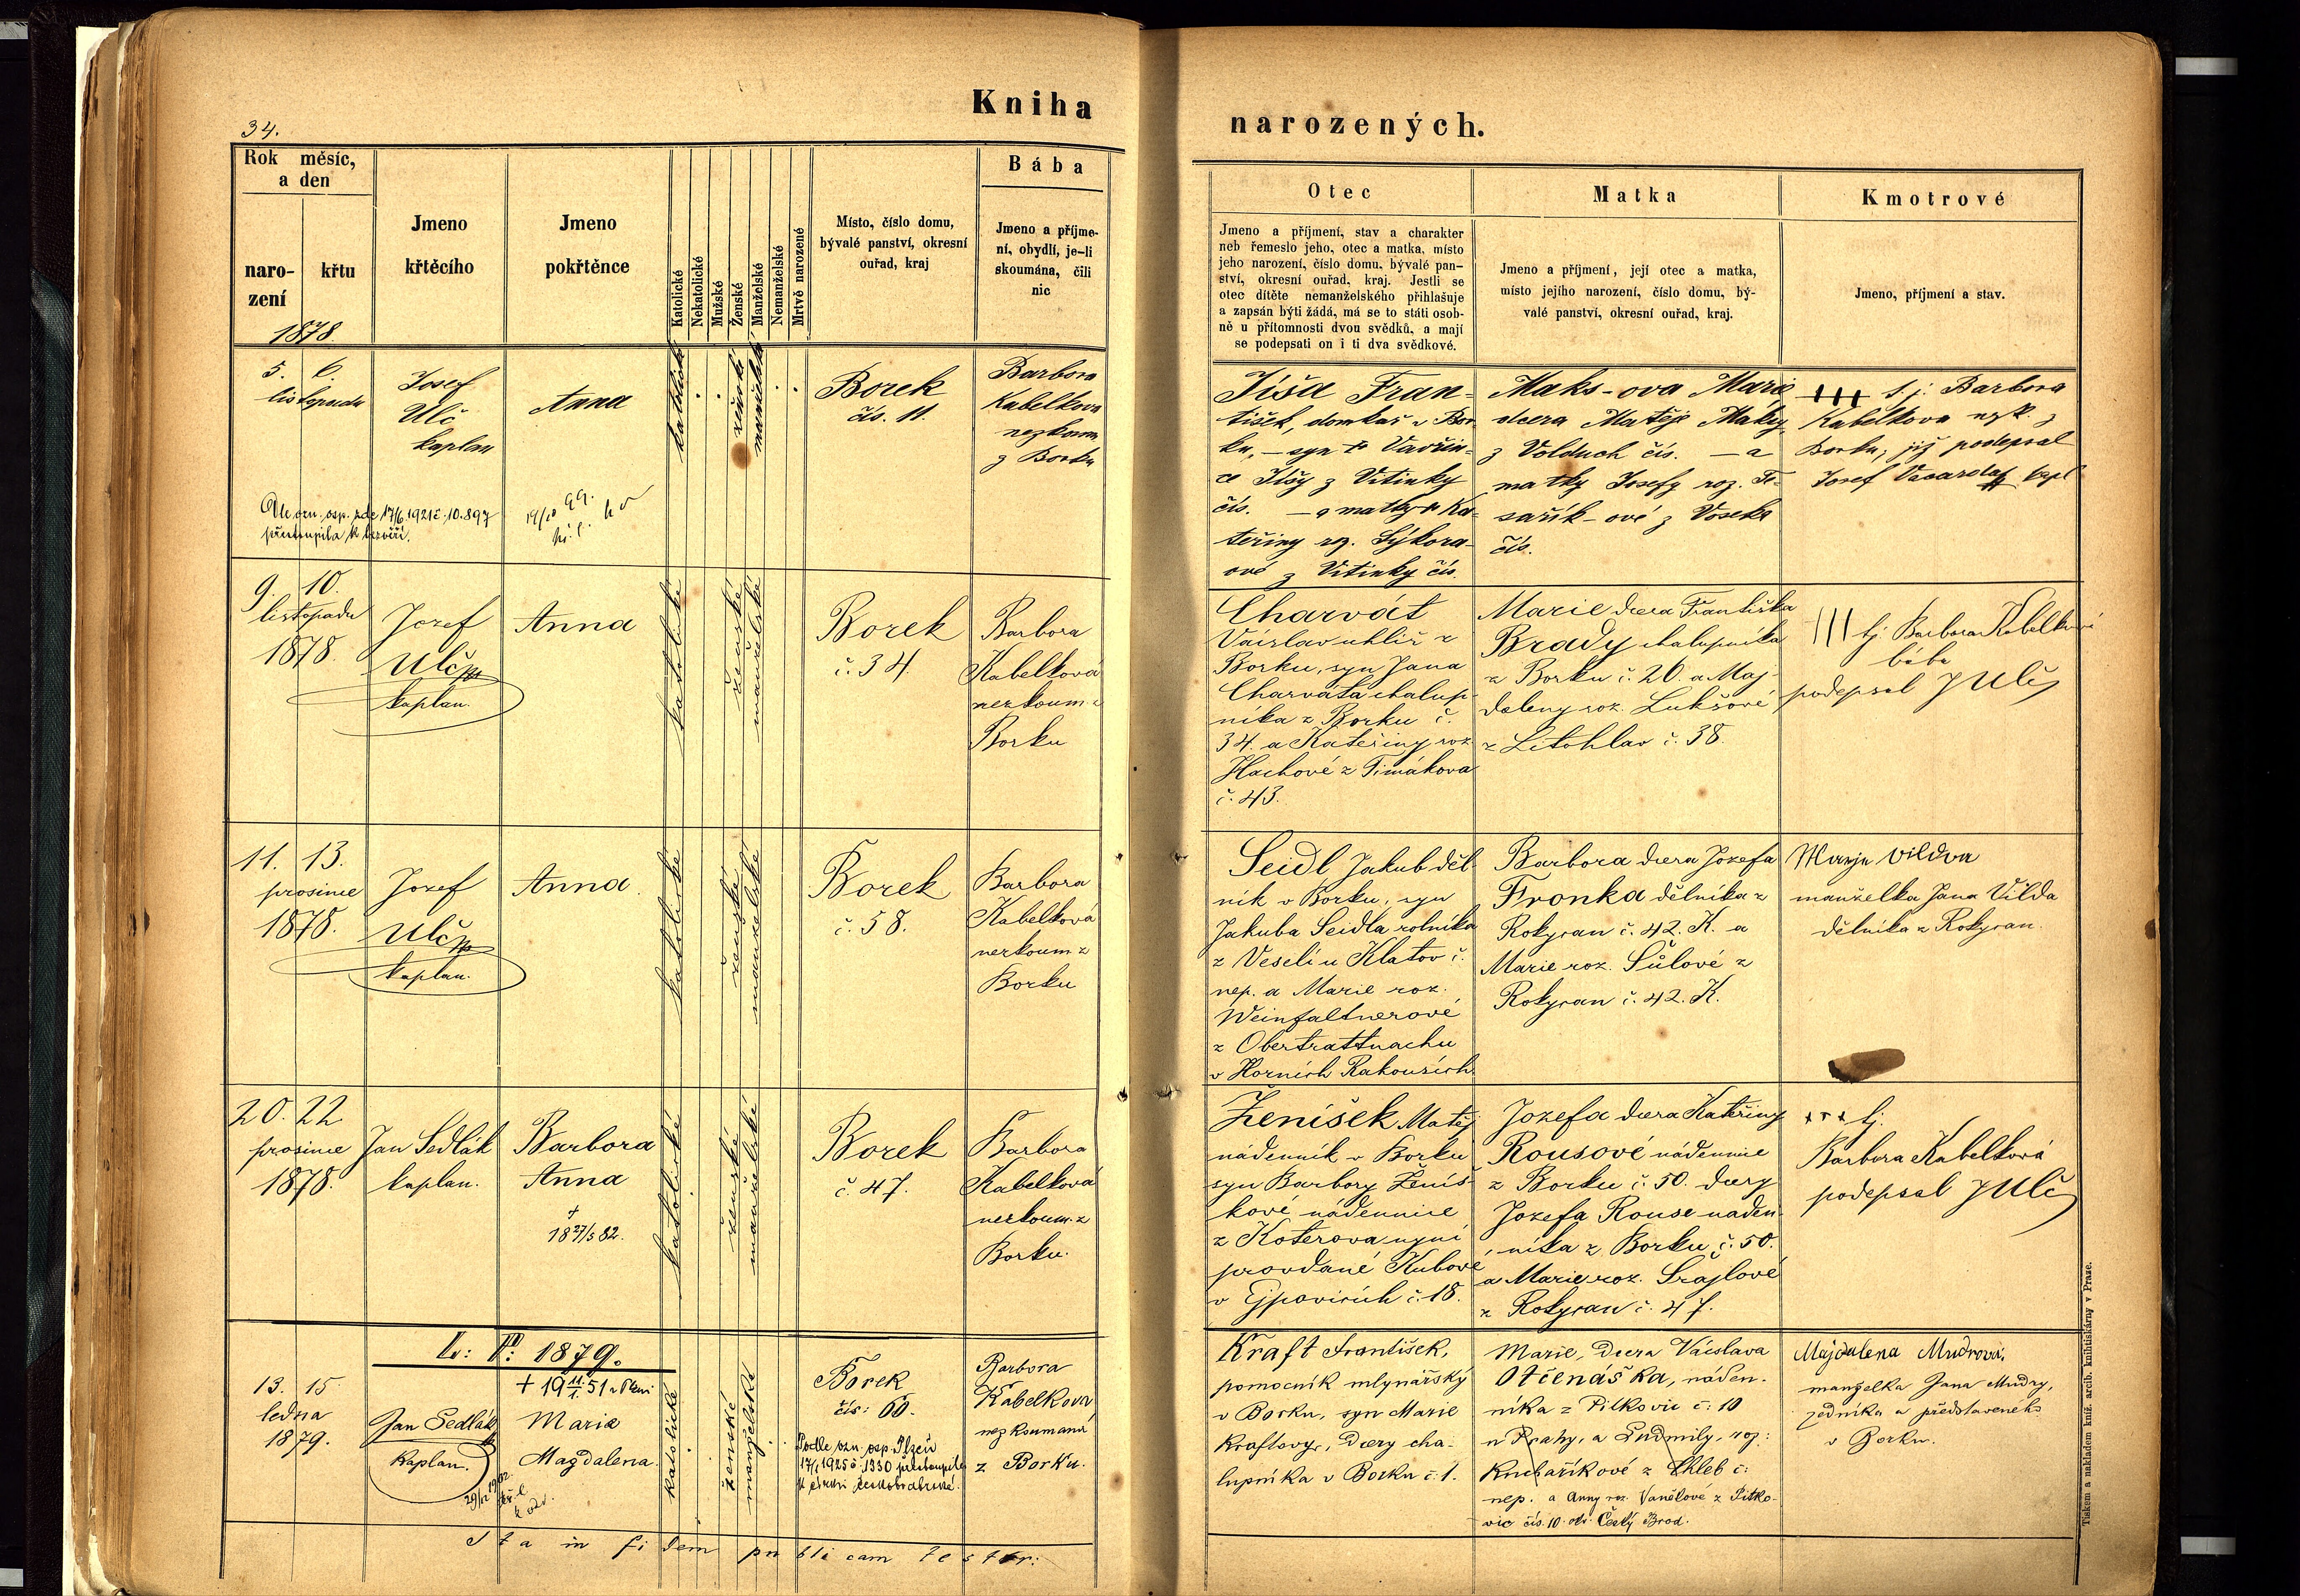 34.
Kniha
narozených.
Rok měsíc,
a den
naro-
zení
křtu
1878.
Jmeno
křtěcího
Jmeno
pokřtěnce
Katolické
Nekatolické
Mužské
Ženské
Manželské
Nemanželské
Mrtvě narozené
Místo, číslo domu,
bývalé panství, okresní
ouřad, kraj
Bába
Jmeno a příjme-
ní, obydlí, je-li
skoumána, čili
nic
Otec
Jmeno a příjmení, stav a charakter
neb řemeslo jeho, otec a matka, místo
jeho narození, číslo domu, bývalé pan-
ství, okresní ouřad, kraj. Jestli se
otec dítěte nemanželského přihlašuje
a zapsán býti žádá, má se to státi osob-
ně u přítomnosti dvou svědků, a mají
se podepsati on i ti dva svědkové.
Matka
Jmeno a příjmení, její otec a matka,
místo jejího narození, číslo domu, bý-
valé panství, okresní ouřad, kraj.
Kmotrové
Jmeno, příjmení a stav.
5. 6.
listopadu
Josef
Ulč
kaplan
Anna
katolické
ženské
manželské
Borek
čís. 11.
Barbora
Kabelkova
nezkoum
z Borku
Jíša Fran-
tišek, domkař v Bor
ku, - syn † Vavřin-
ce Jíšy z Vitinky
čís. — a matky † Ka-
teřiny roz. Sýkora-
ové z Vitinky čís.
Maks-ova Marie
dcera Matěje Maksy
z Volduch čís. — a
matky Josefy roz. Te-
sařík-ové z Voseka
čís.
+++ t. j. Barbora
Kabelkova nezk. z
Borku, již podepsal
Josef kapl
17/6 1921 č. 10.897
přestoupila k bezvěří.
9. 10.
listopadu
1878.
Jozef
Ulč
kaplan.
Anna
katolické
ženské
manželské
Borek
č. 34.
Barbora
Kabelková
nezkoum. z
Borku
Charvát
Václav uhlíř z
Borku, syn Jana
Charváta chalup-
níka z Borku č.
34. a Kateřiny roz.
Hachové z Timákova
č. 43.
Marie dcera Františka
Brady chalupníka
z Borku č. 20. a Maj-
daleny roz. Lukšové
z Litohlav č. 38.
||| tj. Barbora Kabelková
bába
podepsal J Ulč
11. 13.
prosince
1878.
Jozef
Ulč
kaplan.
Anna.
katolické
ženské
manželské
Borek
č. 58.
Barbora
Kabelková
nezkoum. z
Borku
Seidl Jakub děl-
ník v Borku, syn
Jakuba Seidla rolníka
z Veselí u Klatov č.
nep. a Marie roz.
Weinfaltnerové
z Obertrattnachu
v Horních Rakousích.
Barbora dcera Jozefa
Fronka dělníka z
Rokycan č. 42. K. a
Marie roz. Šůlové z
Rokycan č. 42. K.
manželka Jana Vilda
dělníka z Rokycan.
20. 22
prosince
1878.
Jan Sedlák
kaplan.
Barbora
Anna
†
18 27/5 82.
katolické
ženské
manželské
Borek
č. 47.
Barbora
Kabelková
nezkoum. z
Borku.
Ženíšek Matěj
nádenník v Borku
syn Barbory Ženíš-
kové nádennice
z Koterova nyní
provdané Kubové
v Ejpovicích č. 18.
Jozefa dcera Kateřiny
Rousové nádennice
z Borku č. 50. dcery
Jozefa Rouse náden-
níka z Borku č. 50.
a Marie roz. Šrajlové
z Rokycan č. 47.
+++ tj.
Barbora Kabelková
podepsal J Ulč
L: P: 1879.
13. 15.
ledna
1879.
Jan Sedlák
Kaplan.
† 19 11/1 51 v Plzni
Maria
Magdalena.
katolické
ženské
manželské
Borek
čís: 60.
Podle ozn. osp. Plzeň
17/1 1925 č. 1330 přestoupila
k církvi českobratrské.
Barbora
Kabelkova
nezkoumaná
z Borku.
Kraft František,
pomocník mlynářský
v Borku, syn Marie
Kraftovy, dcery cha-
lupníka v Borku č. 1.
Marie, dcera Václava
Otčenáška, náden-
níka z Pitkovic č: 10
u Prahy, a Ludmily, roz:
Kuchaříkové z Chleb č:
nep. a Anny roz. Vaněkové z Pitko-
vic čís. 10. okr. Český Brod.
Majdalena Mudrová,
manželka Jana Mudry,
zedníka a představeného
v Borku.
Ita in fidem publicam testor:
Tiskem a nakladem kníž. arcib. knihtiskárny v Praze.